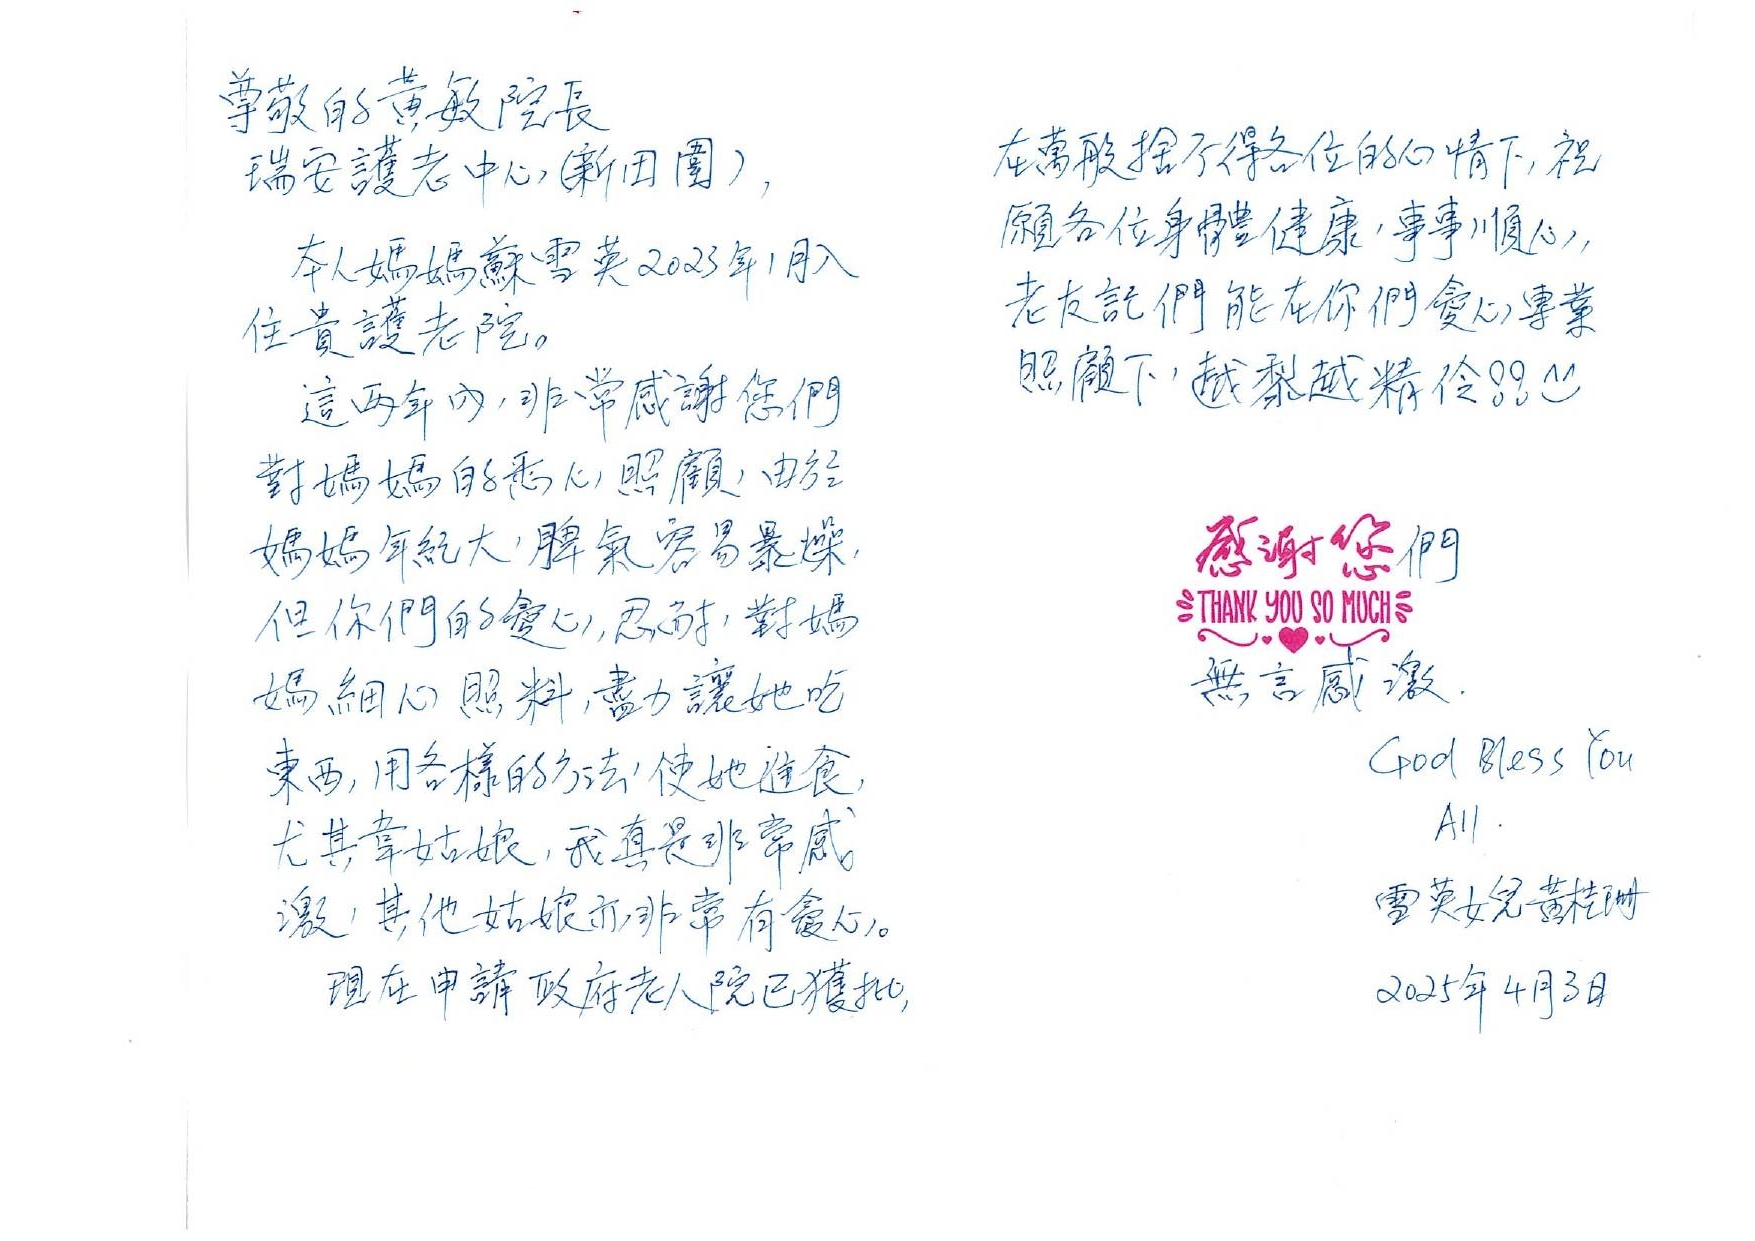 尊敬的黃敏院長
瑞安護老中心(新田圍),
本人媽媽蘇雪英2023年1月入
住貴護老院。
這兩年內,非常感謝您們
對媽媽的悉心照顧,由於
媽媽年紀大,脾氣容易暴燥,
但你們的愛心,忍耐,對媽
媽細心照料,盡力讓她吃
東西,用各樣的方法,使她進食,
尤其韋姑娘,我真是非常感
激,其他姑娘亦非常有愛心。
現在申請政府老人院已獲批,
在萬般捨不得各位的心情下,祝
願各位身體健康,事事順心,
老友記們能在你們愛心專業
照顧下,越黎越精伶!!
感謝您們
THANK YOU SO MUCH
無言感激.
God Bless You
All.
雪英女兒黃桂珊
2025年4月3日